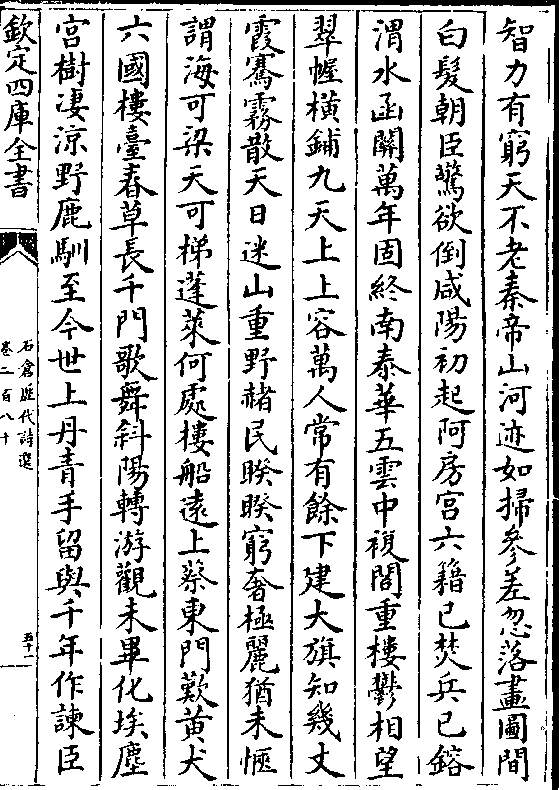 智力有窮天不老秦帝山河迹如掃參差忽落畫圖間
白髮朝臣驚欲倒咸陽初起阿房宮六籍已焚兵已鎔
渭水函關萬年固終南泰華五雲中複閣重樓鬱相望
翠幄橫鋪九天上上容萬人常有餘下建大旗知幾丈
霞騫霧散天日迷山重野赭民睽睽窮奢極麗猶未愜
謂海可梁天可梯蓬萊何處樓船遠上蔡東門歎黃犬
六國樓臺春草長千門歌舞斜陽轉游觀未畢化埃塵
宮樹凄涼野鹿馴至今世上丹青手留與千年作諫臣
欽定四庫全書
石倉歷代詩選
卷二百八十
五十